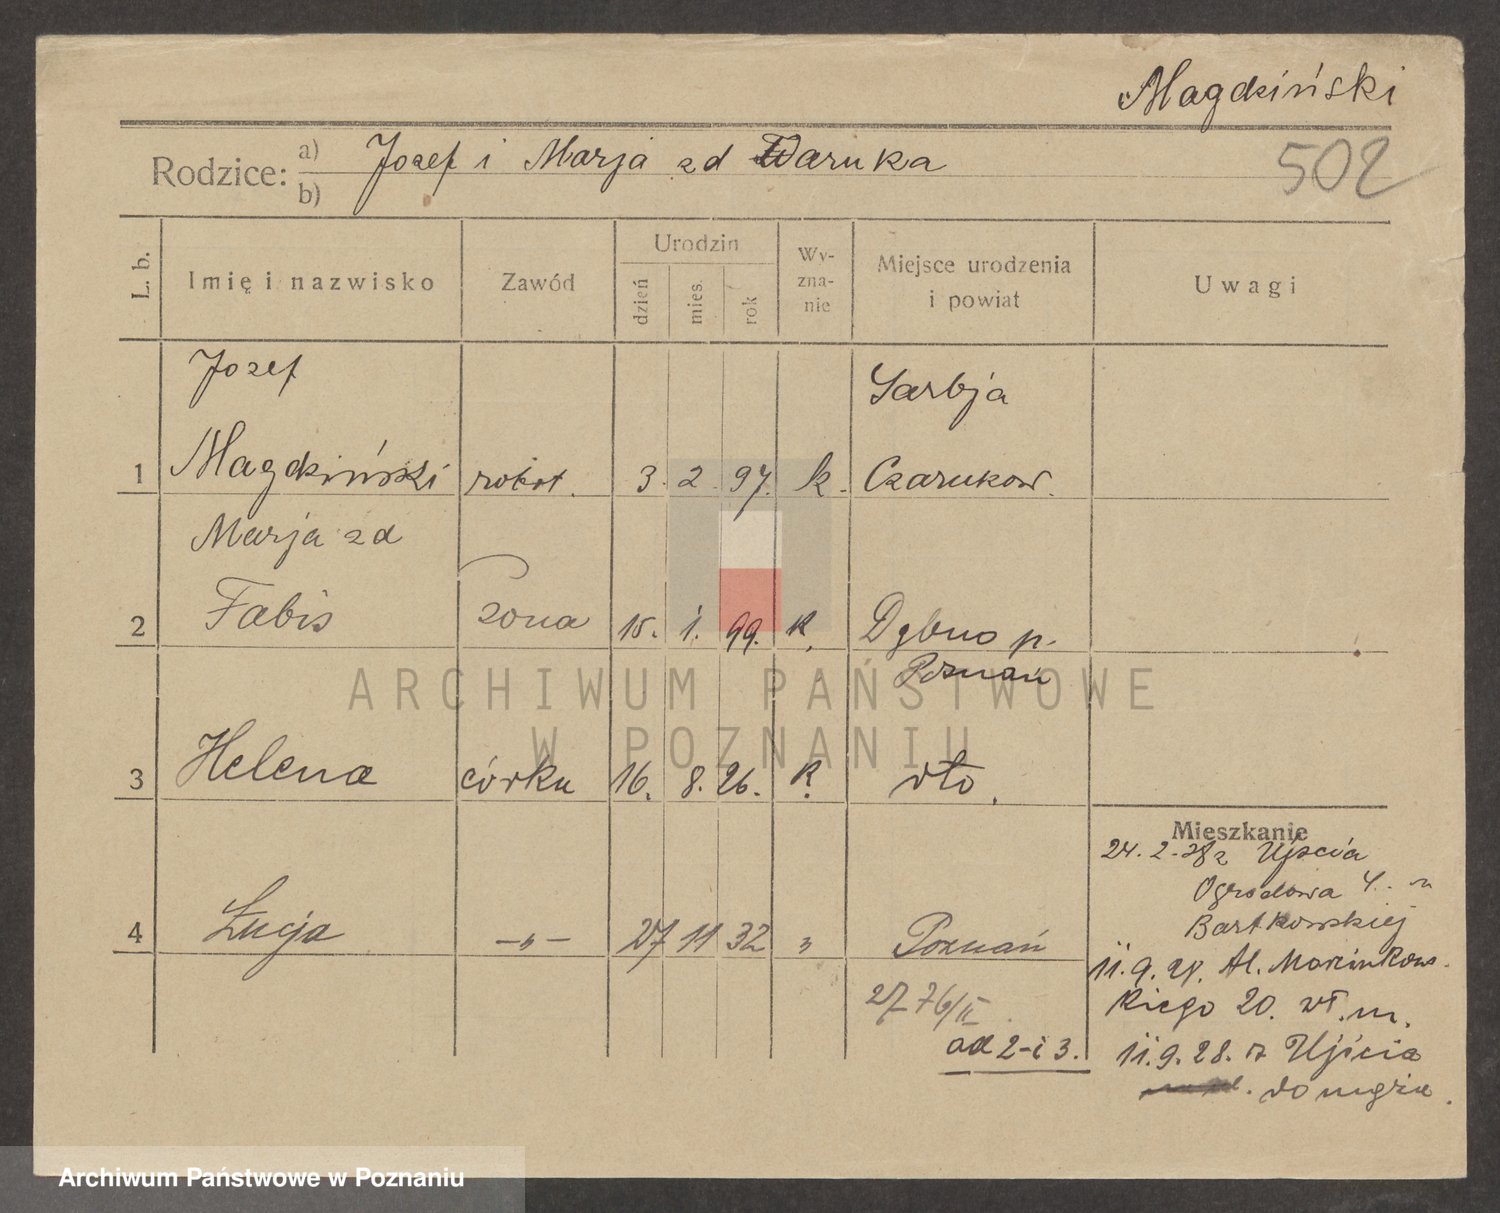 Magdziński
Rodzice: a) Jozef i Marja zd Waruka
b)
502
L. b.
Imię i nazwisko
Zawód
Urodzin
dzień
mies.
rok
Wy-
zna-
nie
Miejsce urodzenia
i powiat
Uwagi
Jozef
Sarbja
1 Magdziński robot. 3. 2. 97. k. Czarnkow.
Marja zd
2 Fabis zona 15. 1. 99. k. Dębno p.
Poznań
3 Helena córka 16. 8. 26. k. dto.
Mieszkanie
24. 2. 28 z Ujścia
Ogrodowa 4.
Bartkowskiej
4 Łucja —„— 27 11 32 „ Poznań
11. 9. 28. Al. Marcinkows-
kiego 20. wł. m.
27 76/II
ad 2 i 3.
11. 9. 28. z Ujścia
do męża.
ARCHIWUM PAŃSTWOWE
W POZNANIU
Archiwum Państwowe w Poznaniu